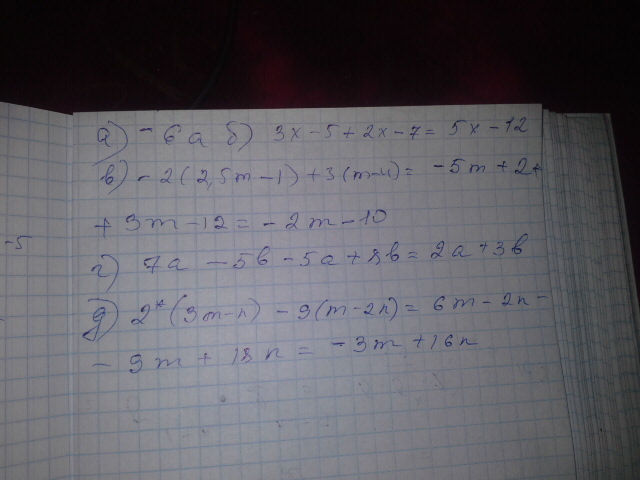 а) -6а б) 3x-5+2x-7= 5x-12
в) -2(2,5m-1)+3(m-4)= -5m+2+
+3m-12=-2m-10
г) 7а -5в-5а+8в=2а+3в
д) 2*(3m-n) -9(m-2n)= 6m-2n-
-9m+18n = -3m+16n
-5